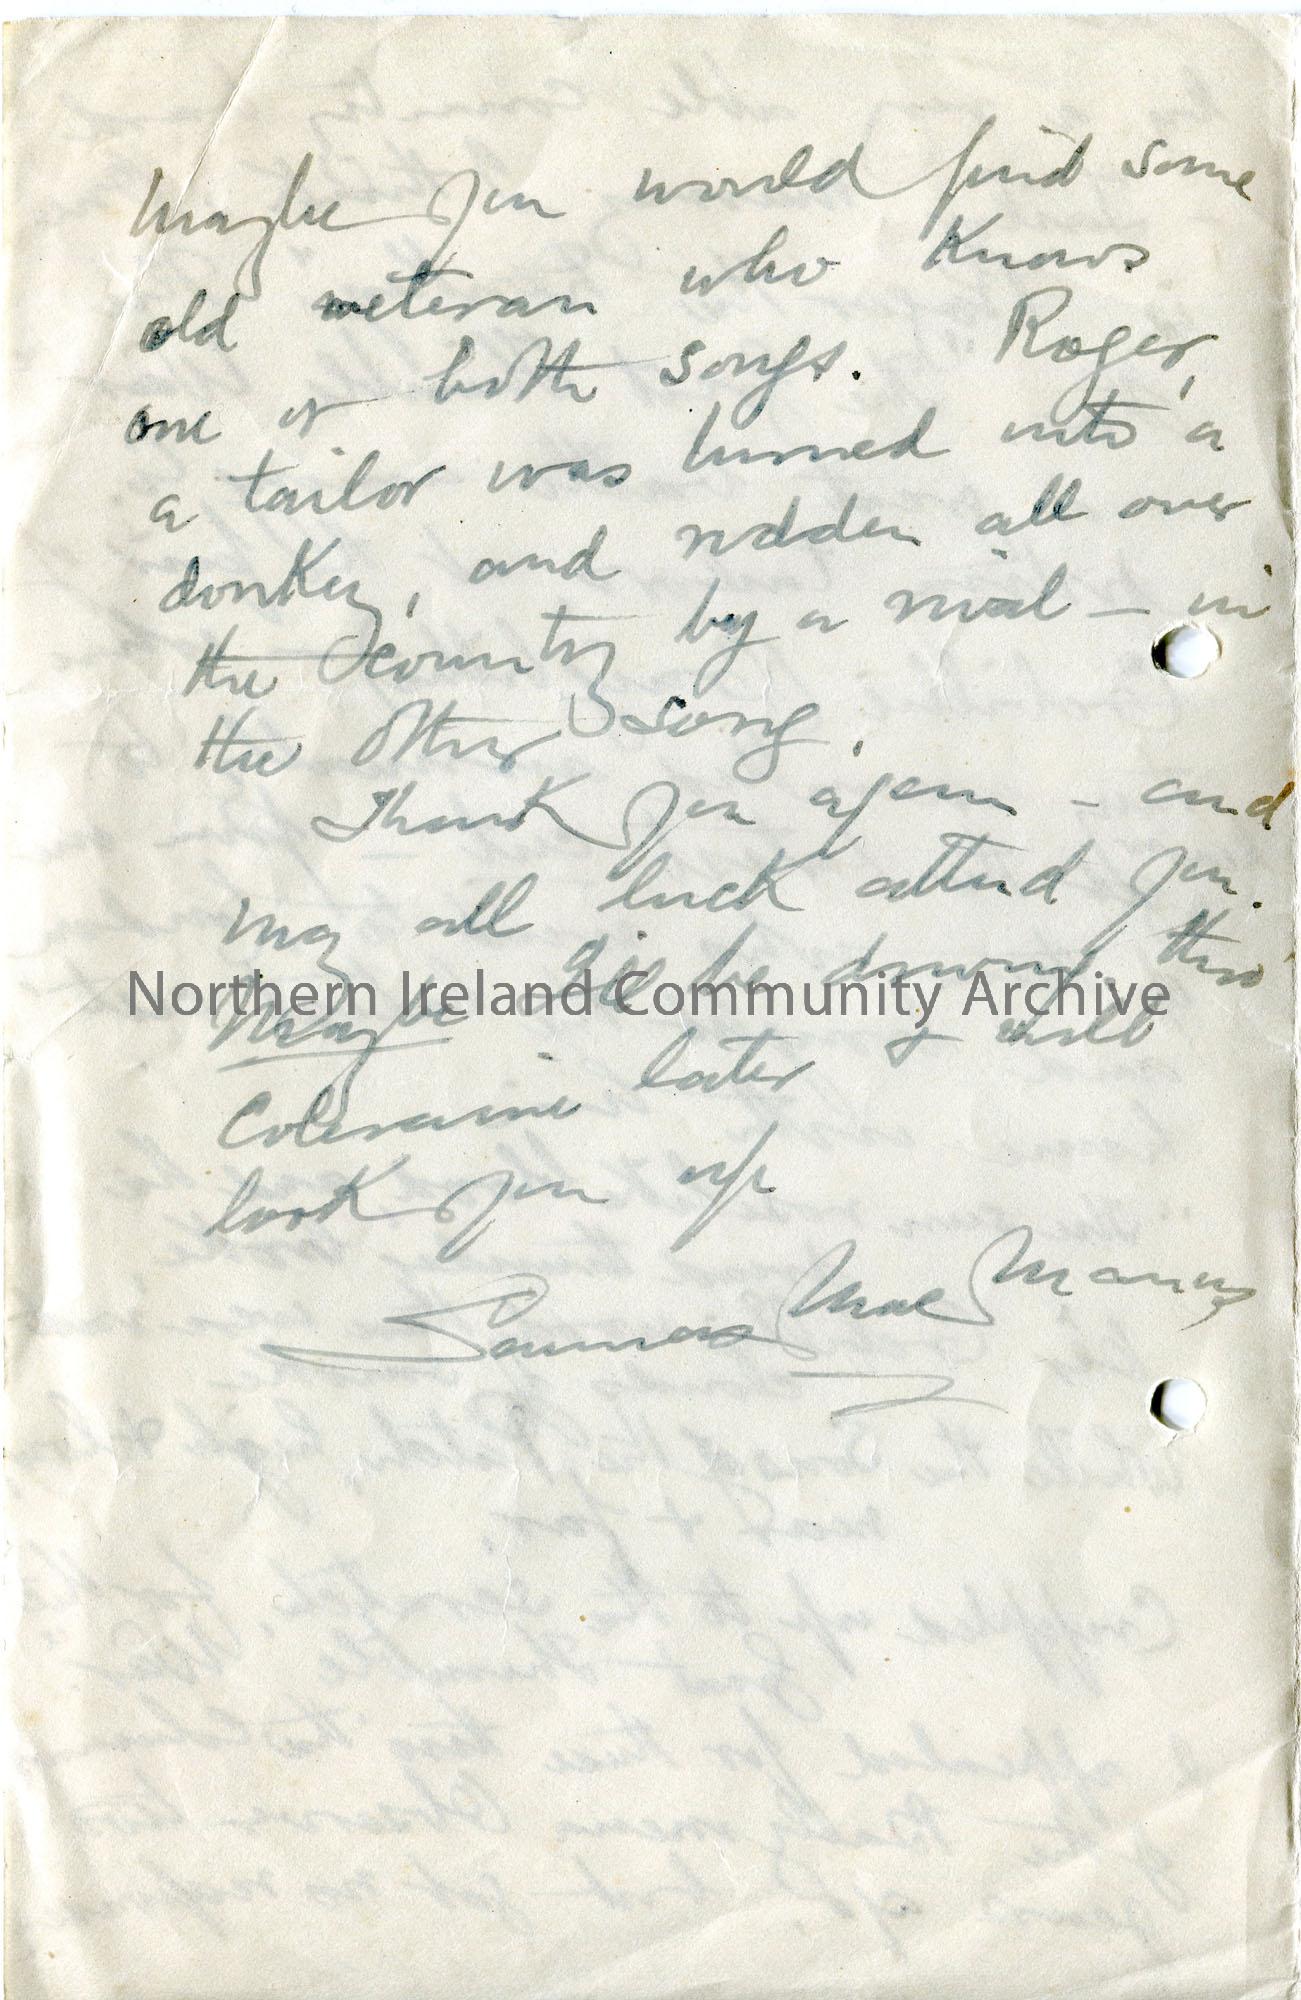 Maybe you would find some
old veteran who knows
one or both songs. Roger,
a tailor was turned into a
donkey, and ridden all over
the country by a rival – in
the other song.
Thank you again – and
may all luck attend you.
Maybe I'll be driving thro'
Northern Ireland Community Archive
Coleraine later & will
look you up
Seumas MacManus